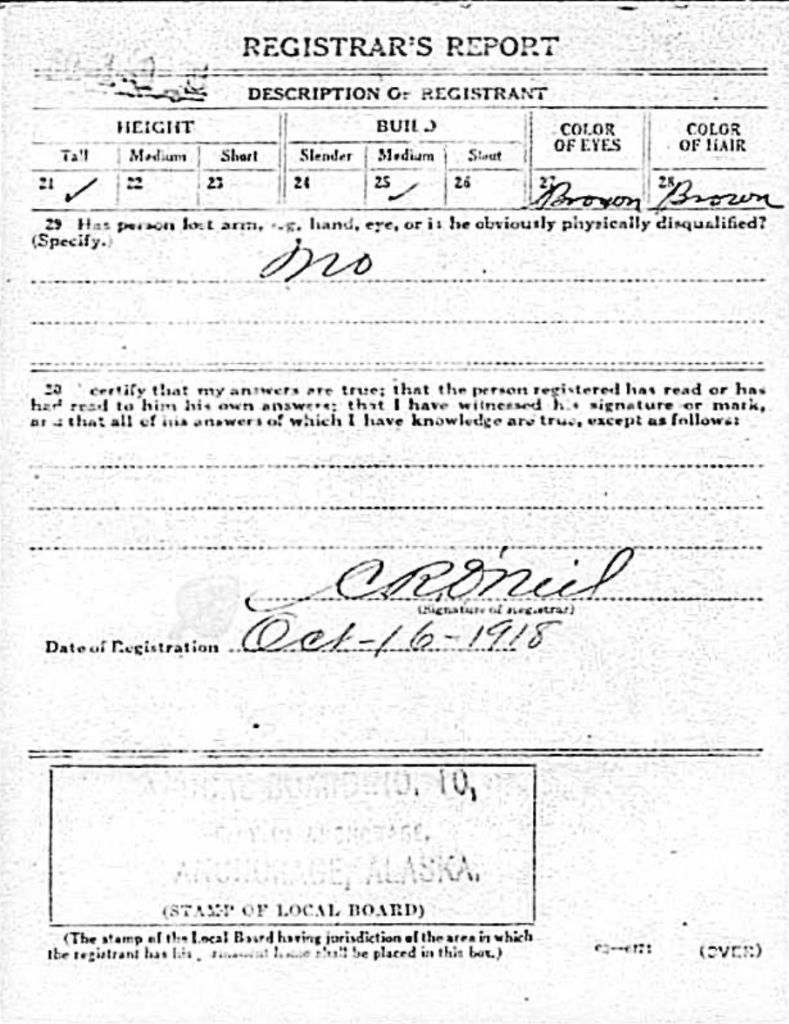 REGISTRAR'S REPORT
DESCRIPTION OF REGISTRANT
HEIGHT BUILD COLOR OF EYES COLOR OF HAIR
Tall Medium Short Slender Medium Stout
21 ✓ 22 23 24 25 ✓ 26 27 Brown 28 Brown
29 Has person lost arm, leg, hand, eye, or is he obviously physically disqualified?
(Specify.)
No
30 I certify that my answers are true; that the person registered has read or has
had read to him his own answers; that I have witnessed his signature or mark,
and that all of his answers of which I have knowledge are true, except as follows:
C R O'Neil
(Signature of Registrar)
Date of Registration Oct-16-1918
LOCAL BOARD NO. 10,
ANCHORAGE,
ANCHORAGE, ALASKA.
(STAMP OF LOCAL BOARD)
(The stamp of the Local Board having jurisdiction of the area in which
the registrant has his permanent home shall be placed in this box.)
(OVER)